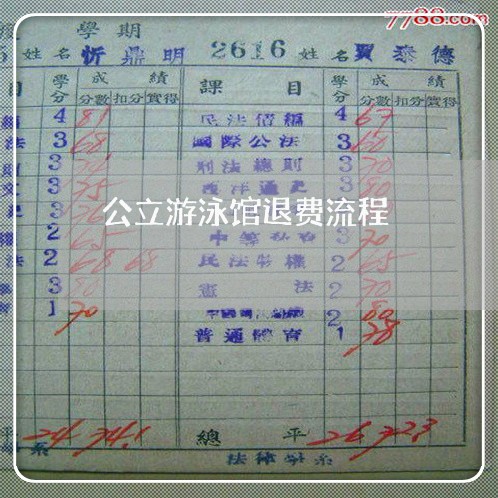 7788.com
學期
姓名 忻鼎明 2616 姓名 賈泰德
目 學分 成績 課目 學分 成績
分數 扣分 實得 分數 扣分 實得
4 81 民法債編 4 67
法 3 68 國際公法 3 60
3 刑法總則 3 70
3 75 西洋通史 3 80
公立游泳馆退费流程
2 65 3 70
法 2 68 68 民法物權 2 65
3 80 憲法 2 70
1 70 2 80
普通體育 1 78
24 74.1 總平 26 72.3
系 法律學系